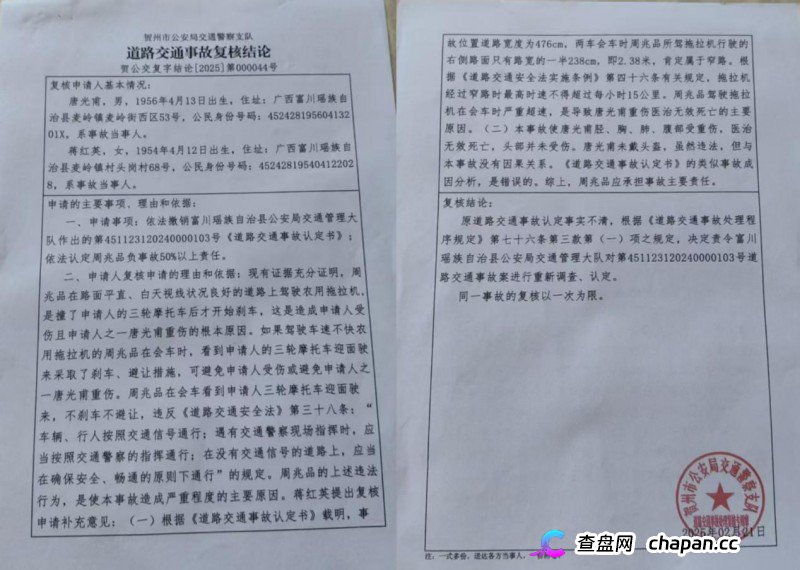 贺州市公安局交通警察支队
道路交通事故复核结论
贺公交复字结论[2025]第000044号
复核申请人基本情况:
唐光甫,男,1956年4月13日出生,住址:广西富川瑶族自
治县麦岭镇麦岭街西区53号,公民身份号码:452428195604132
01X,系事故当事人。
蒋红英,女,1954年4月12日出生,住址:广西富川瑶族自
治县麦岭镇村头岗村68号,公民身份号码:45242819540412202
8,系事故当事人。
申请的主要事项、理由和依据:
一、申请事项:依法撤销富川瑶族自治县公安局交通管理大
队作出的第451123120240000103号《道路交通事故认定书》;
依法认定周兆品负事故50%以上责任。
二、申请人复核申请的理由和依据:现有证据充分证明,周
兆品在路面平直、白天视线状况良好的道路上驾驶农用拖拉机,
是撞了申请人的三轮摩托车后才开始刹车,这是造成申请人受
伤且申请人之一唐光甫重伤的根本原因。如果驾驶车速不快农
用拖拉机的周兆品在会车时,看到申请人的三轮摩托车迎面驶
来采取了刹车、避让措施,可避免申请人受伤或避免申请人之
一唐光甫重伤。周兆品在会车看到申请人三轮摩托车迎面驶
来,不刹车不避让,违反《道路交通安全法》第三十八条:“
车辆、行人按照交通信号通行;遇有交通警察现场指挥时,应
当按照交通警察的指挥通行;在没有交通信号的道路上,应当
在确保安全、畅通的原则下通行”的规定。周兆品的上述违法
行为,是使本事故造成严重程度的主要原因。蒋红英提出复核
申请补充意见:(一)根据《道路交通事故认定书》载明,事
故位置道路宽度为476cm,两车会车时周兆品所驾拖拉机行驶的
右侧路面只有路宽的一半238cm,即2.38米,肯定属于窄路。根
据《道路交通安全法实施条例》第四十六条有关规定,拖拉机
经过窄路时最高时速不得超过每小时15公里。周兆品驾驶拖拉
机在会车时严重超速,是导致唐光甫重伤医治无效死亡的主要
原因。(二)本事故使唐光甫胫、胸、肺、腹部受重伤,医治
无效死亡,头部并未受伤。唐光甫未戴头盔。虽然违法,但与
本事故没有因果关系。《道路交通事故认定书》的类似事故成
因分析,是错误的。综上,周兆品应承担事故主要责任。
复核结论:
原道路交通事故认定事实不清,根据《道路交通事故处理程
序规定》第七十六条第三款第(一)项之规定,决定责令富川
瑶族自治县公安局交通管理大队对第451123120240000103号道
路交通事故案进行重新调查、认定。
同一事故的复核以一次为限。
贺州市公安局交通警察支队
2025年02月21日
注:一式多份,送达各方当事人,
查盘网 chapan.cc